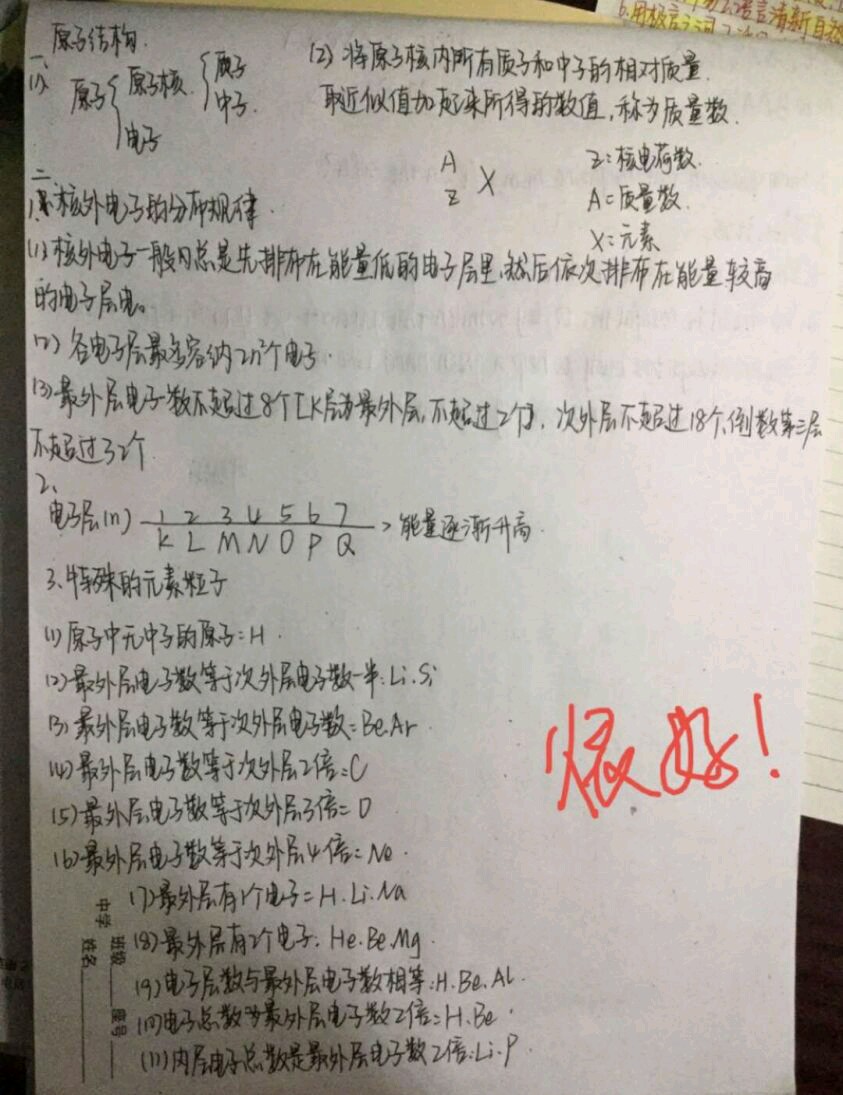 6.用极言之词
原子结构.
一、
(1) 原子{原子核.{质子 中子.
电子
(2) 将原子核内所有质子和中子的相对质量.
取近似值加起来所得的数值,称为质量数.
A
Z X
Z:核电荷数.
A=质量数.
X:元素
二、
1.核外电子的分布规律.
(1)核外电子一般总是先排布在能量低的电子层里,然后依次排布在能量较高
的电子层.
(2) 各电子层最多容纳2n²个电子.
(3)最外层电子数不超过8个[K层为最外层,不超过2个],次外层不超过18个,倒数第三层
不超过32个
2、
电子层(n) 1 2 3 4 5 6 7
K L M N O P Q > 能量逐渐升高.
3、特殊的元素粒子
(1)原子中无中子的原子:H.
(2)最外层电子数等于次外层电子数一半:Li.Si
(3)最外层电子数等于次外层电子数=Be.Ar.
(4)最外层电子数等于次外层2倍:C
(5)最外层电子数等于次外层3倍=O
(6)最外层电子数等于次外层4倍=Ne.
(7)最外层有1个电子=H.Li.Na
(8)最外层有2个电子:He.Be.Mg.
(9)电子层数与最外层电子数相等:H.Be.Al.
(10)电子总数为最外层电子数2倍=H.Be.
(11)内层电子总数是最外层电子数2倍:Li.P
很好!
中学 班级
姓名
座号